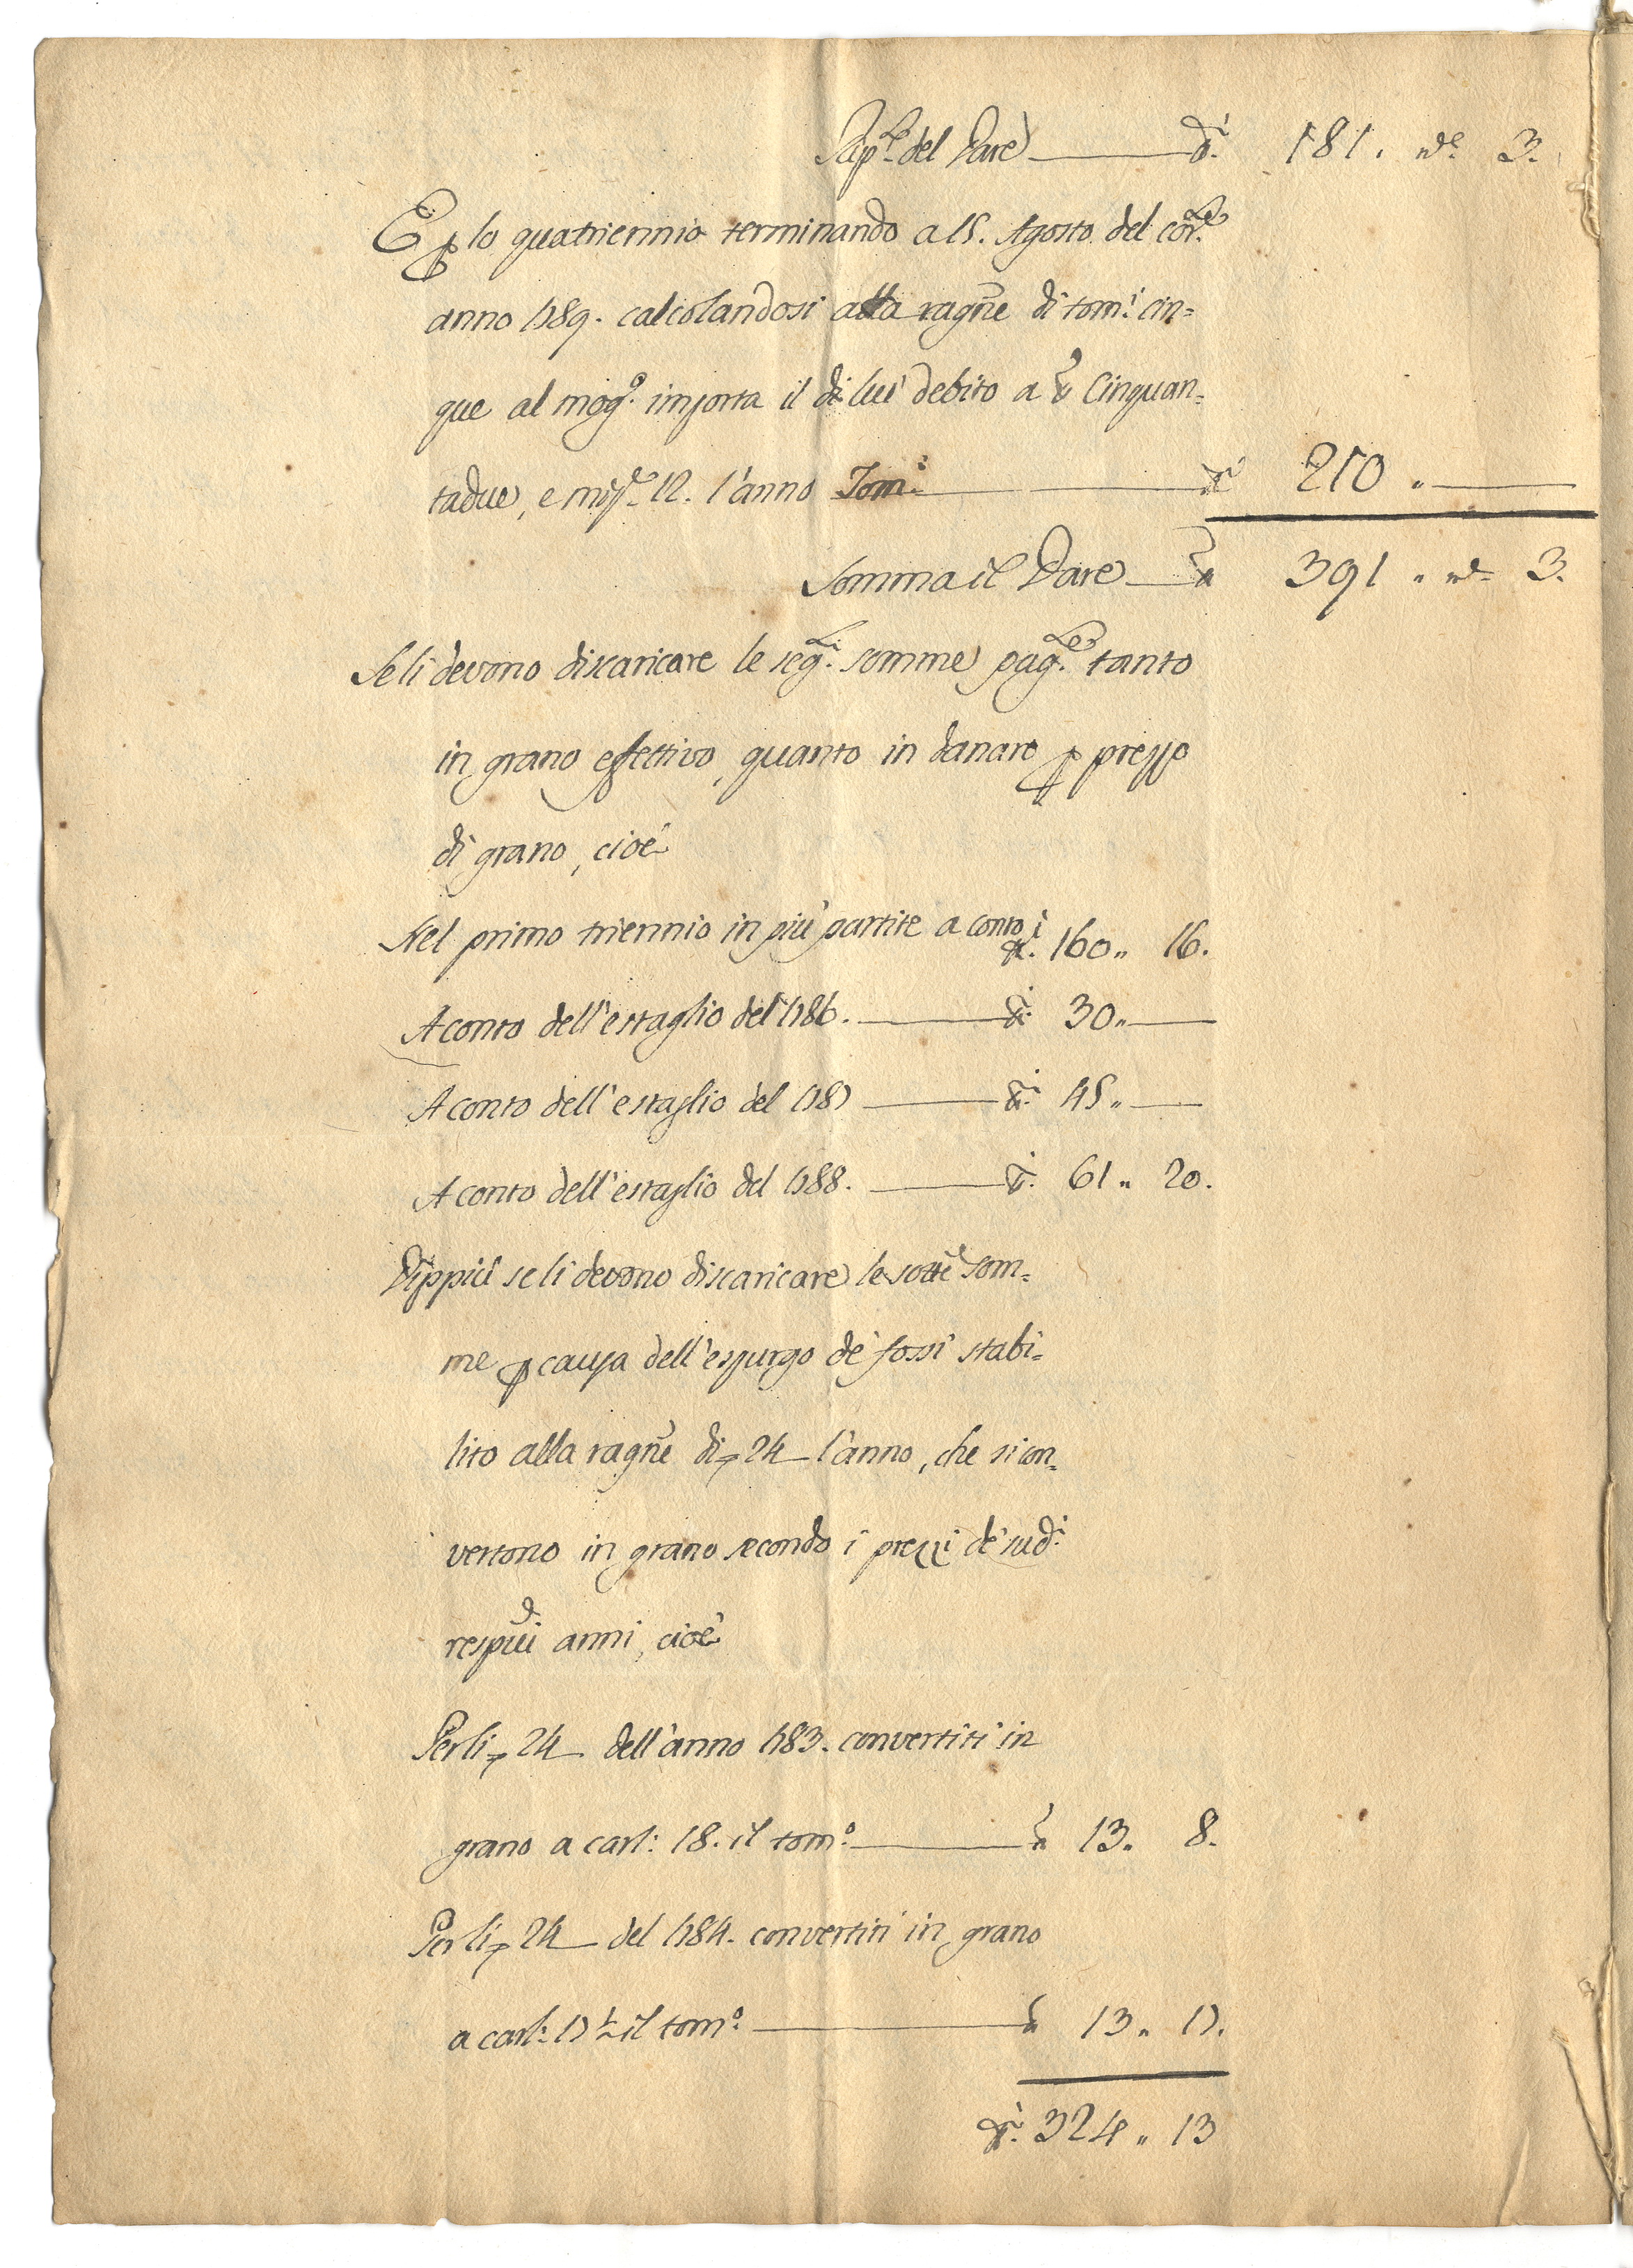 Rip.ta del Dare — t.i 181. m.e 3.
E p lo quatriennio terminando a 15. Agosto del cor.te
anno 1789. calcolandosi alla ragne di tom.i cin=
que al mog.o importa il di lui debito a t Cinquan=
tadue, e mis.e 12. l'anno Tom.i — t.i 210 . —
Somma il Dare — t 391 . m.e 3.
Se li devono discaricare le seg.ti somme pag.te tanto
in grano effettivo, quanto in danaro p prezzo
di grano, cioè
Nel primo triennio in più partite a conto t.i 160 " 16.
A conto dell'estaglio del 1786. — t.i 30 " —
A conto dell'estaglio del 1787 — t.i 45 " —
A conto dell'estaglio del 1788. — t.i 61 " 20.
Dippiù se li devono discaricare le sotte som=
me p causa dell'espurgo de' fossi stabi=
lito alla ragne di 24 — l'anno, che si con=
vertono in grano secondo i prezzi de' sud.i
respui anni, cioè
Per li 24 — dell'anno 1783. convertiti in
grano a carl: 18. il tom.o — t 13. 8.
Per li 24 — del 1784. convertiti in grano
a carl: 17 ½ il tom.o — t 13 " 17.
t.i 324 " 13